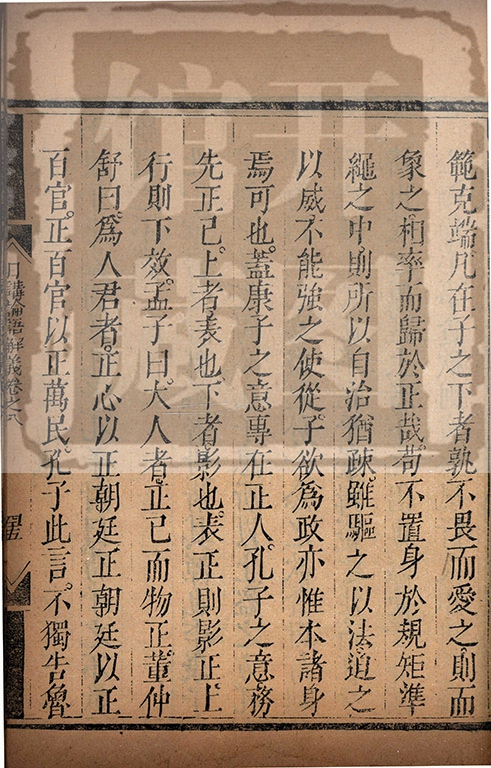 範克端凡在子之下者孰不畏而愛之則而
象之相率而歸於正哉苟不置身於規矩準
繩之中則所以自治猶疎雖驅之以法迫之
以威不能強之使從子欲為政亦惟本諸身
焉可也蓋康子之意專在正人孔子之意務
先正己上者表也下者影也表正則影正上
行則下效孟子曰大人者正己而物正董仲
舒曰為人君者正心以正朝廷正朝廷以正
百官正百官以正萬民孔子此言不獨告魯
日講論語解義卷之八